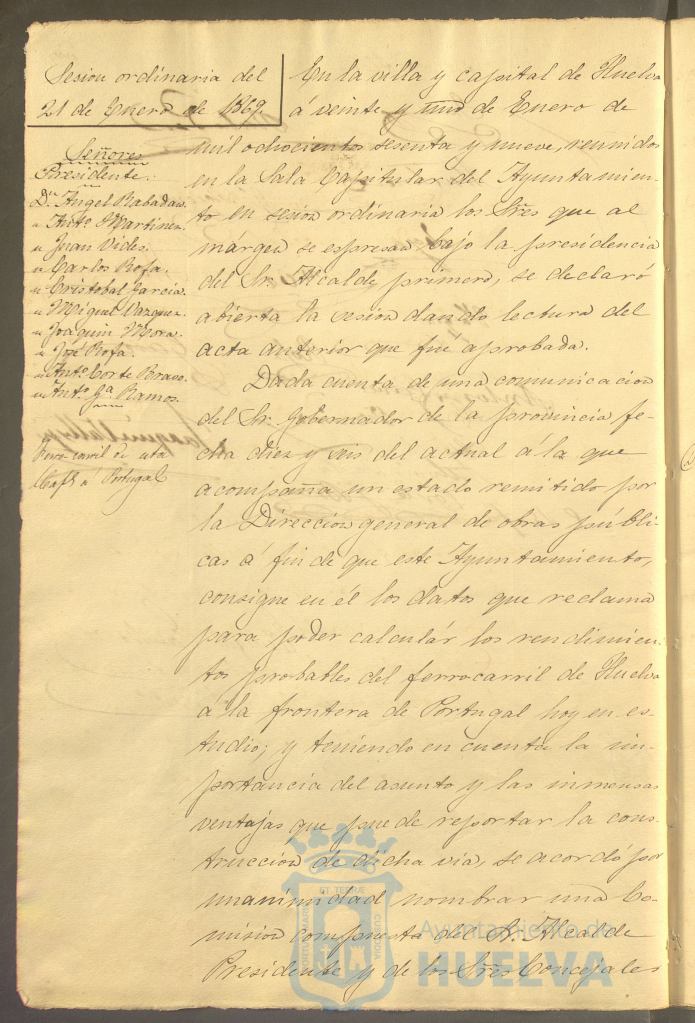 Sesion ordinaria del
21 de Enero de 1869.
Señores
Presidente.
Dn. Angel Rabadan
" Anto. Martinez
" Juan Vides
" Carlos Rofa.
" Cristobal Garcia
" Miguel Vazquez
" Joaquin Mora.
" José Rofa.
" Anto. Corte Bravo.
" Anto. Ga. Ramos.
Ferro-carril de esta
á Portugal
En la villa y capital de Huelva
á veinte y uno de Enero de
mil ochocientos sesenta y nueve, reunidos
en la Sala Capitular del Ayuntamien-
to en sesion ordinaria los Sres que al
márgen se espresan bajo la presidencia
del Sr. Alcalde primero, se declaró
abierta la sesion dando lectura del
acta anterior que fue aprobada.
Dada cuenta de una comunicacion
del Sr. Gobernador de la provincia fe-
cha diez y seis del actual á la que
acompaña un estado remitido por
la Direccion general de obras públi-
cas á fin de que este Ayuntamiento,
consigne en él los datos que reclama
para poder calculár los rendimien-
tos probables del ferrocarril de Huelva
á la frontera de Portugal hoy en es-
tudio; y teniendo en cuenta la im-
portancia del asunto y las inmensas
ventajas que puede reportar la cons-
truccion de dicha via, se acordó por
unanimidad nombrar una Co-
mision compuesta del Sr. Alcalde
Presidente y de los Sres Concejales
Ayuntamiento de
HUELVA